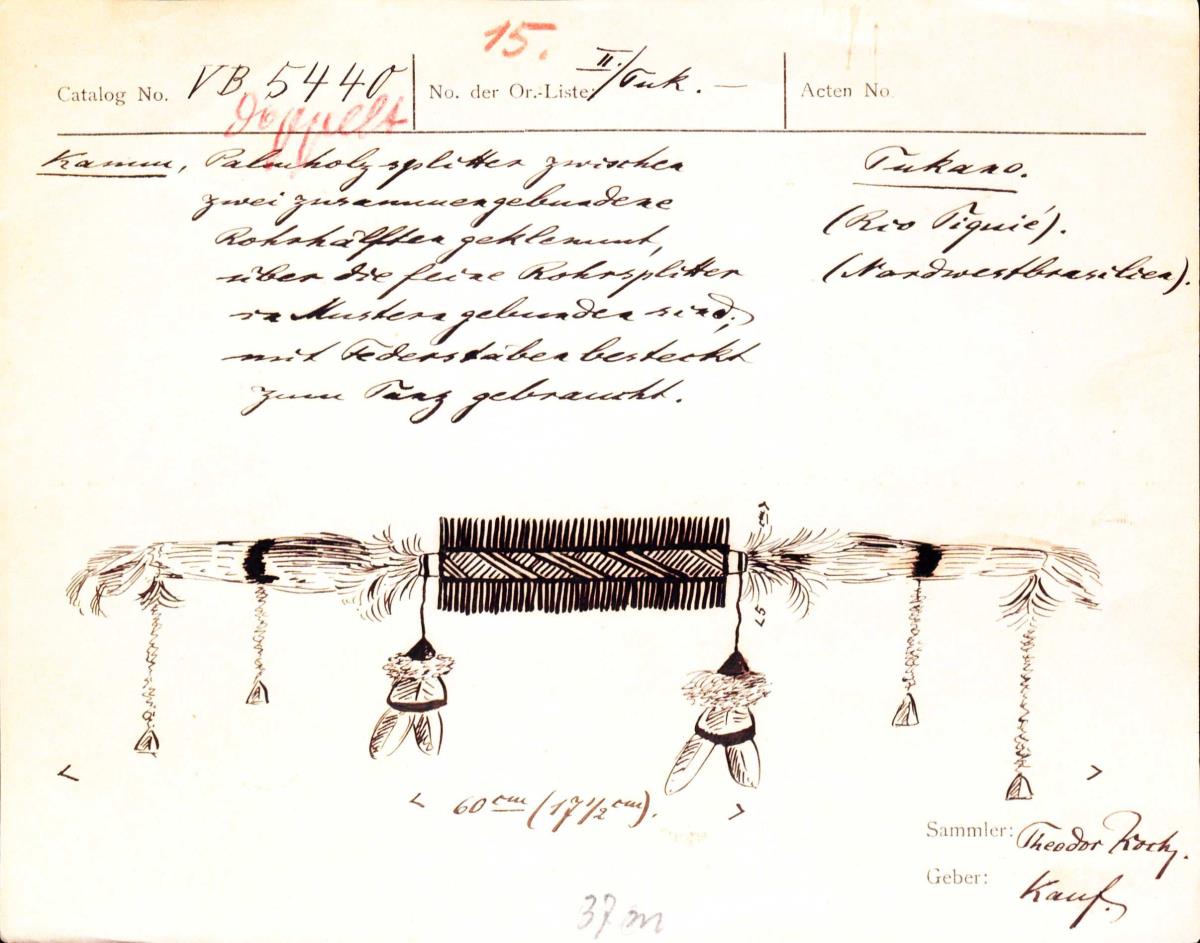 15.
Catalog No. VB 5440
doppelt
No. der Or.-Liste: II./Tuk. —
Acten No.
Kamm, Palmholzsplitter zwischen
zwei zusammengebundene
Rohrhälften geklemmt,
über die feine Rohrsplitter
in Mustern gebunden sind;
mit Federstäben besteckt
zum Tanz gebraucht.
Tukano.
(Rio Tiquié).
(Nordwestbrasilien).
< 60 cm (17 1/2 cm). >
Sammler: Theodor Koch.
Geber: Kauf.